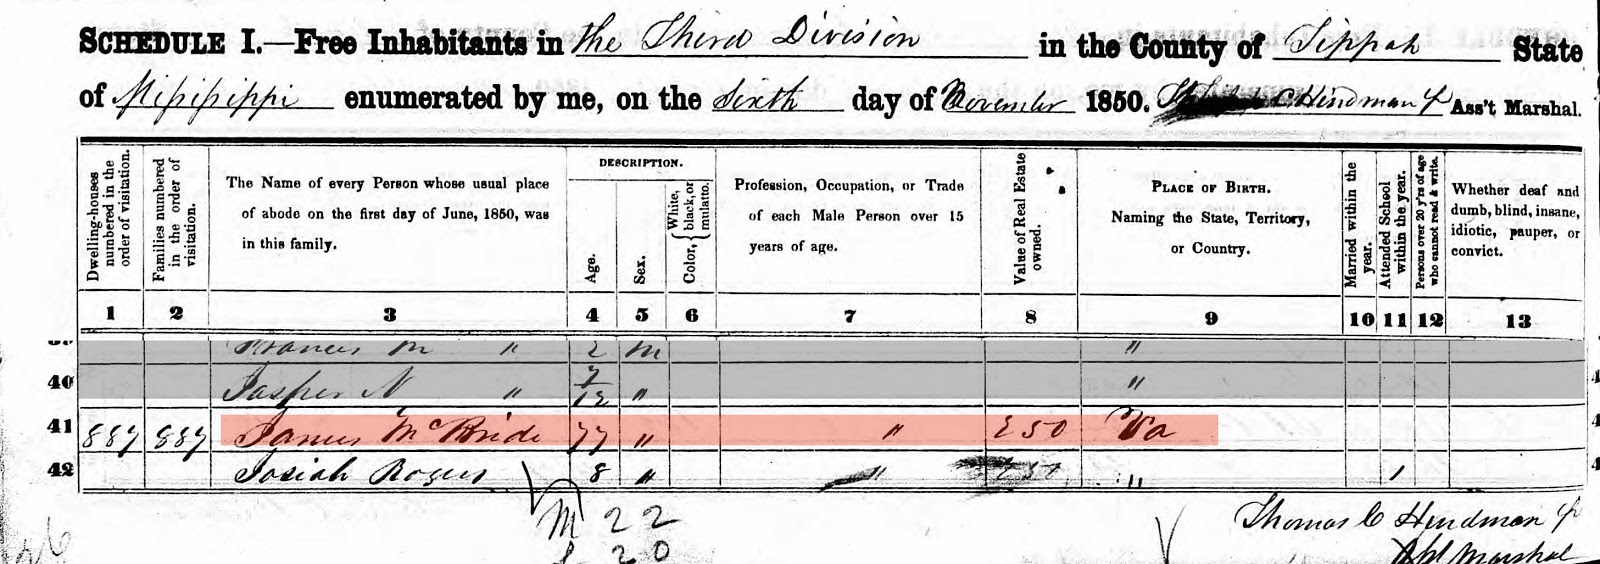 SCHEDULE I.—Free Inhabitants in the Third Division in the County of Tippah State
of Mississippi enumerated by me, on the Sixth day of November 1850. C. Hindman Jr Ass't Marshal.
Dwelling-houses numbered in the order of visitation.
Families numbered in the order of visitation.
The Name of every Person whose usual place of abode on the first day of June, 1850, was in this family.
DESCRIPTION.
Age.
Sex.
Color, { White, black, or mulatto.
Profession, Occupation, or Trade of each Male Person over 15 years of age.
Value of Real Estate owned.
PLACE OF BIRTH. Naming the State, Territory, or Country.
Married within the year.
Attended School within the year.
Persons over 20 y'rs of age who cannot read & write.
Whether deaf and dumb, blind, insane, idiotic, pauper, or convict.
1 2 3 4 5 6 7 8 9 10 11 12 13
39 Frances M " 2 m "
40 Jasper N " 7/12 " "
41 887 887 James McBride 77 " " 250 Va
42 Josiah Rogers 8 " " " 1
M 22
20
Thomas C Hindman Jr
Marshal